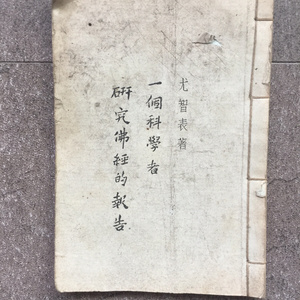 尤智表著
一個科學者
研究佛經的報告